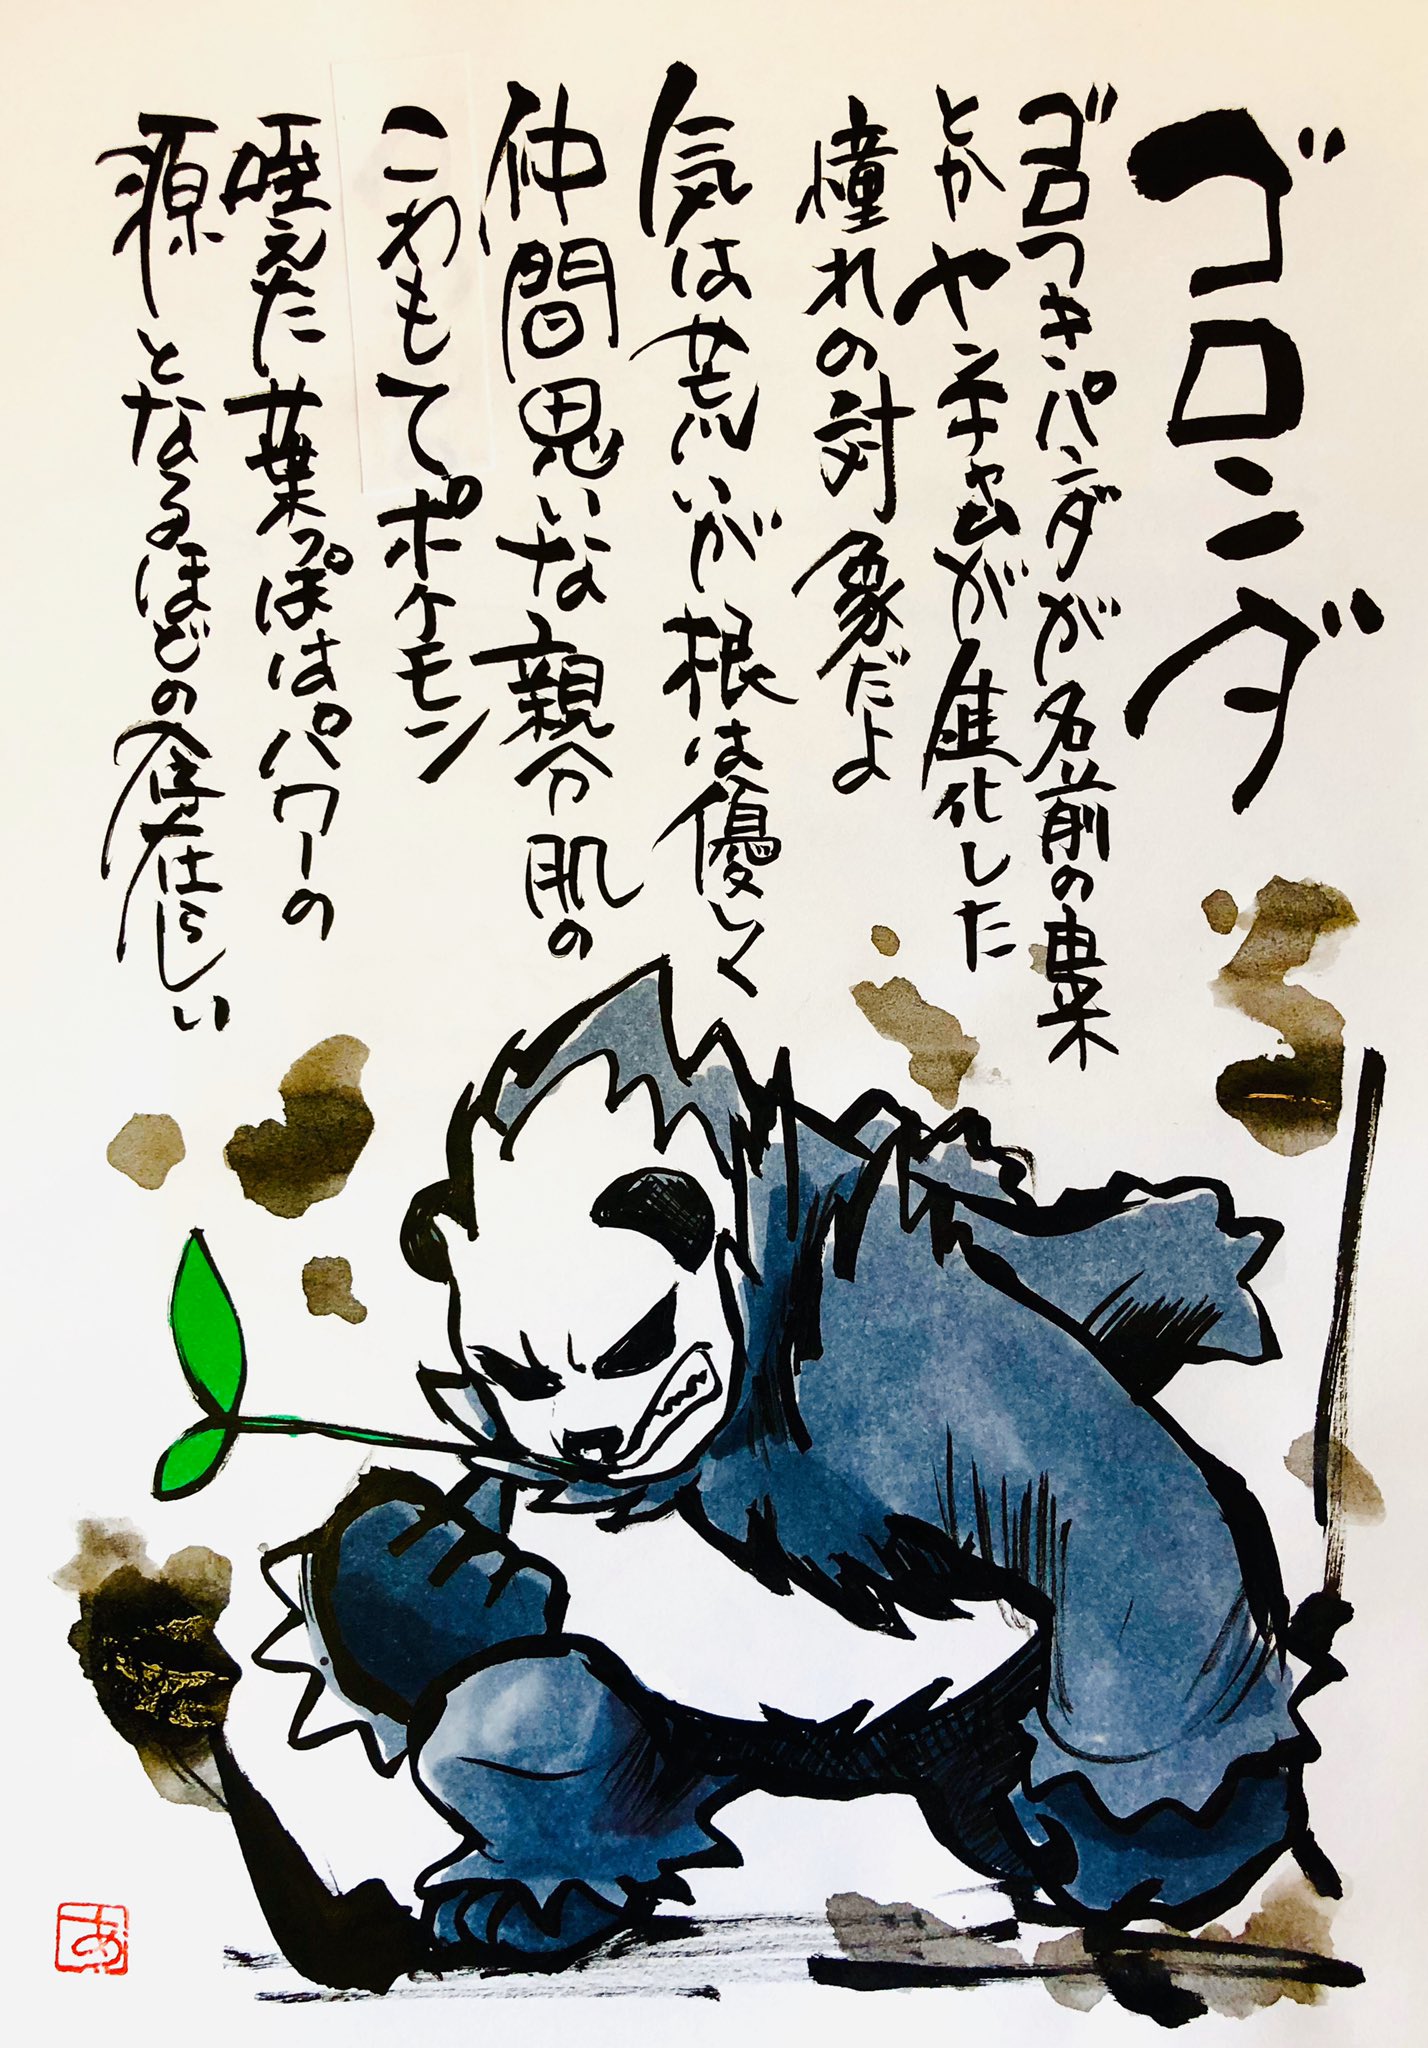 ゴロンダ
ゴロつきパンダが名前の由来
とかヤンチャムが進化した
憧れの対象だよ
気は荒いが根は優しく
仲間思いな親分肌の
こわもてポケモン
咥えた葉っぱはパワーの
源となるほどの存在らしい
あ